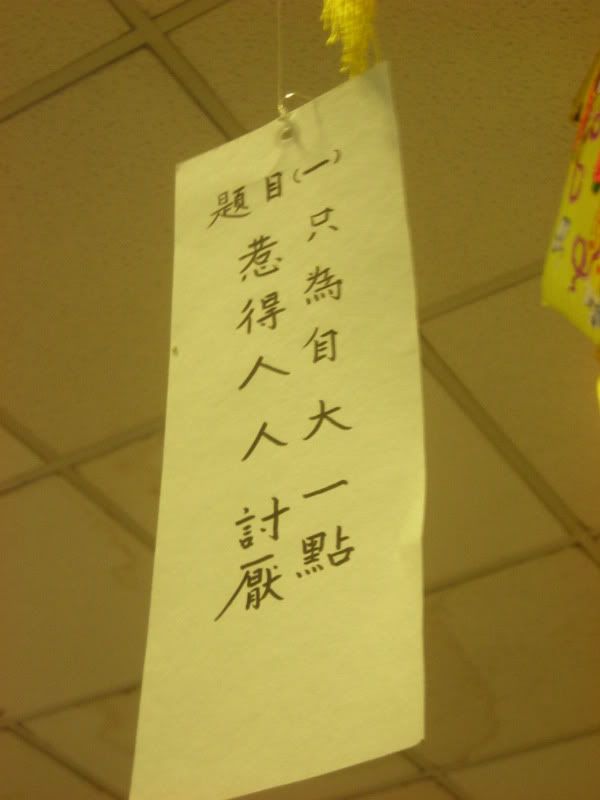 題目(一)
只為自大一點
惹得人人討厭